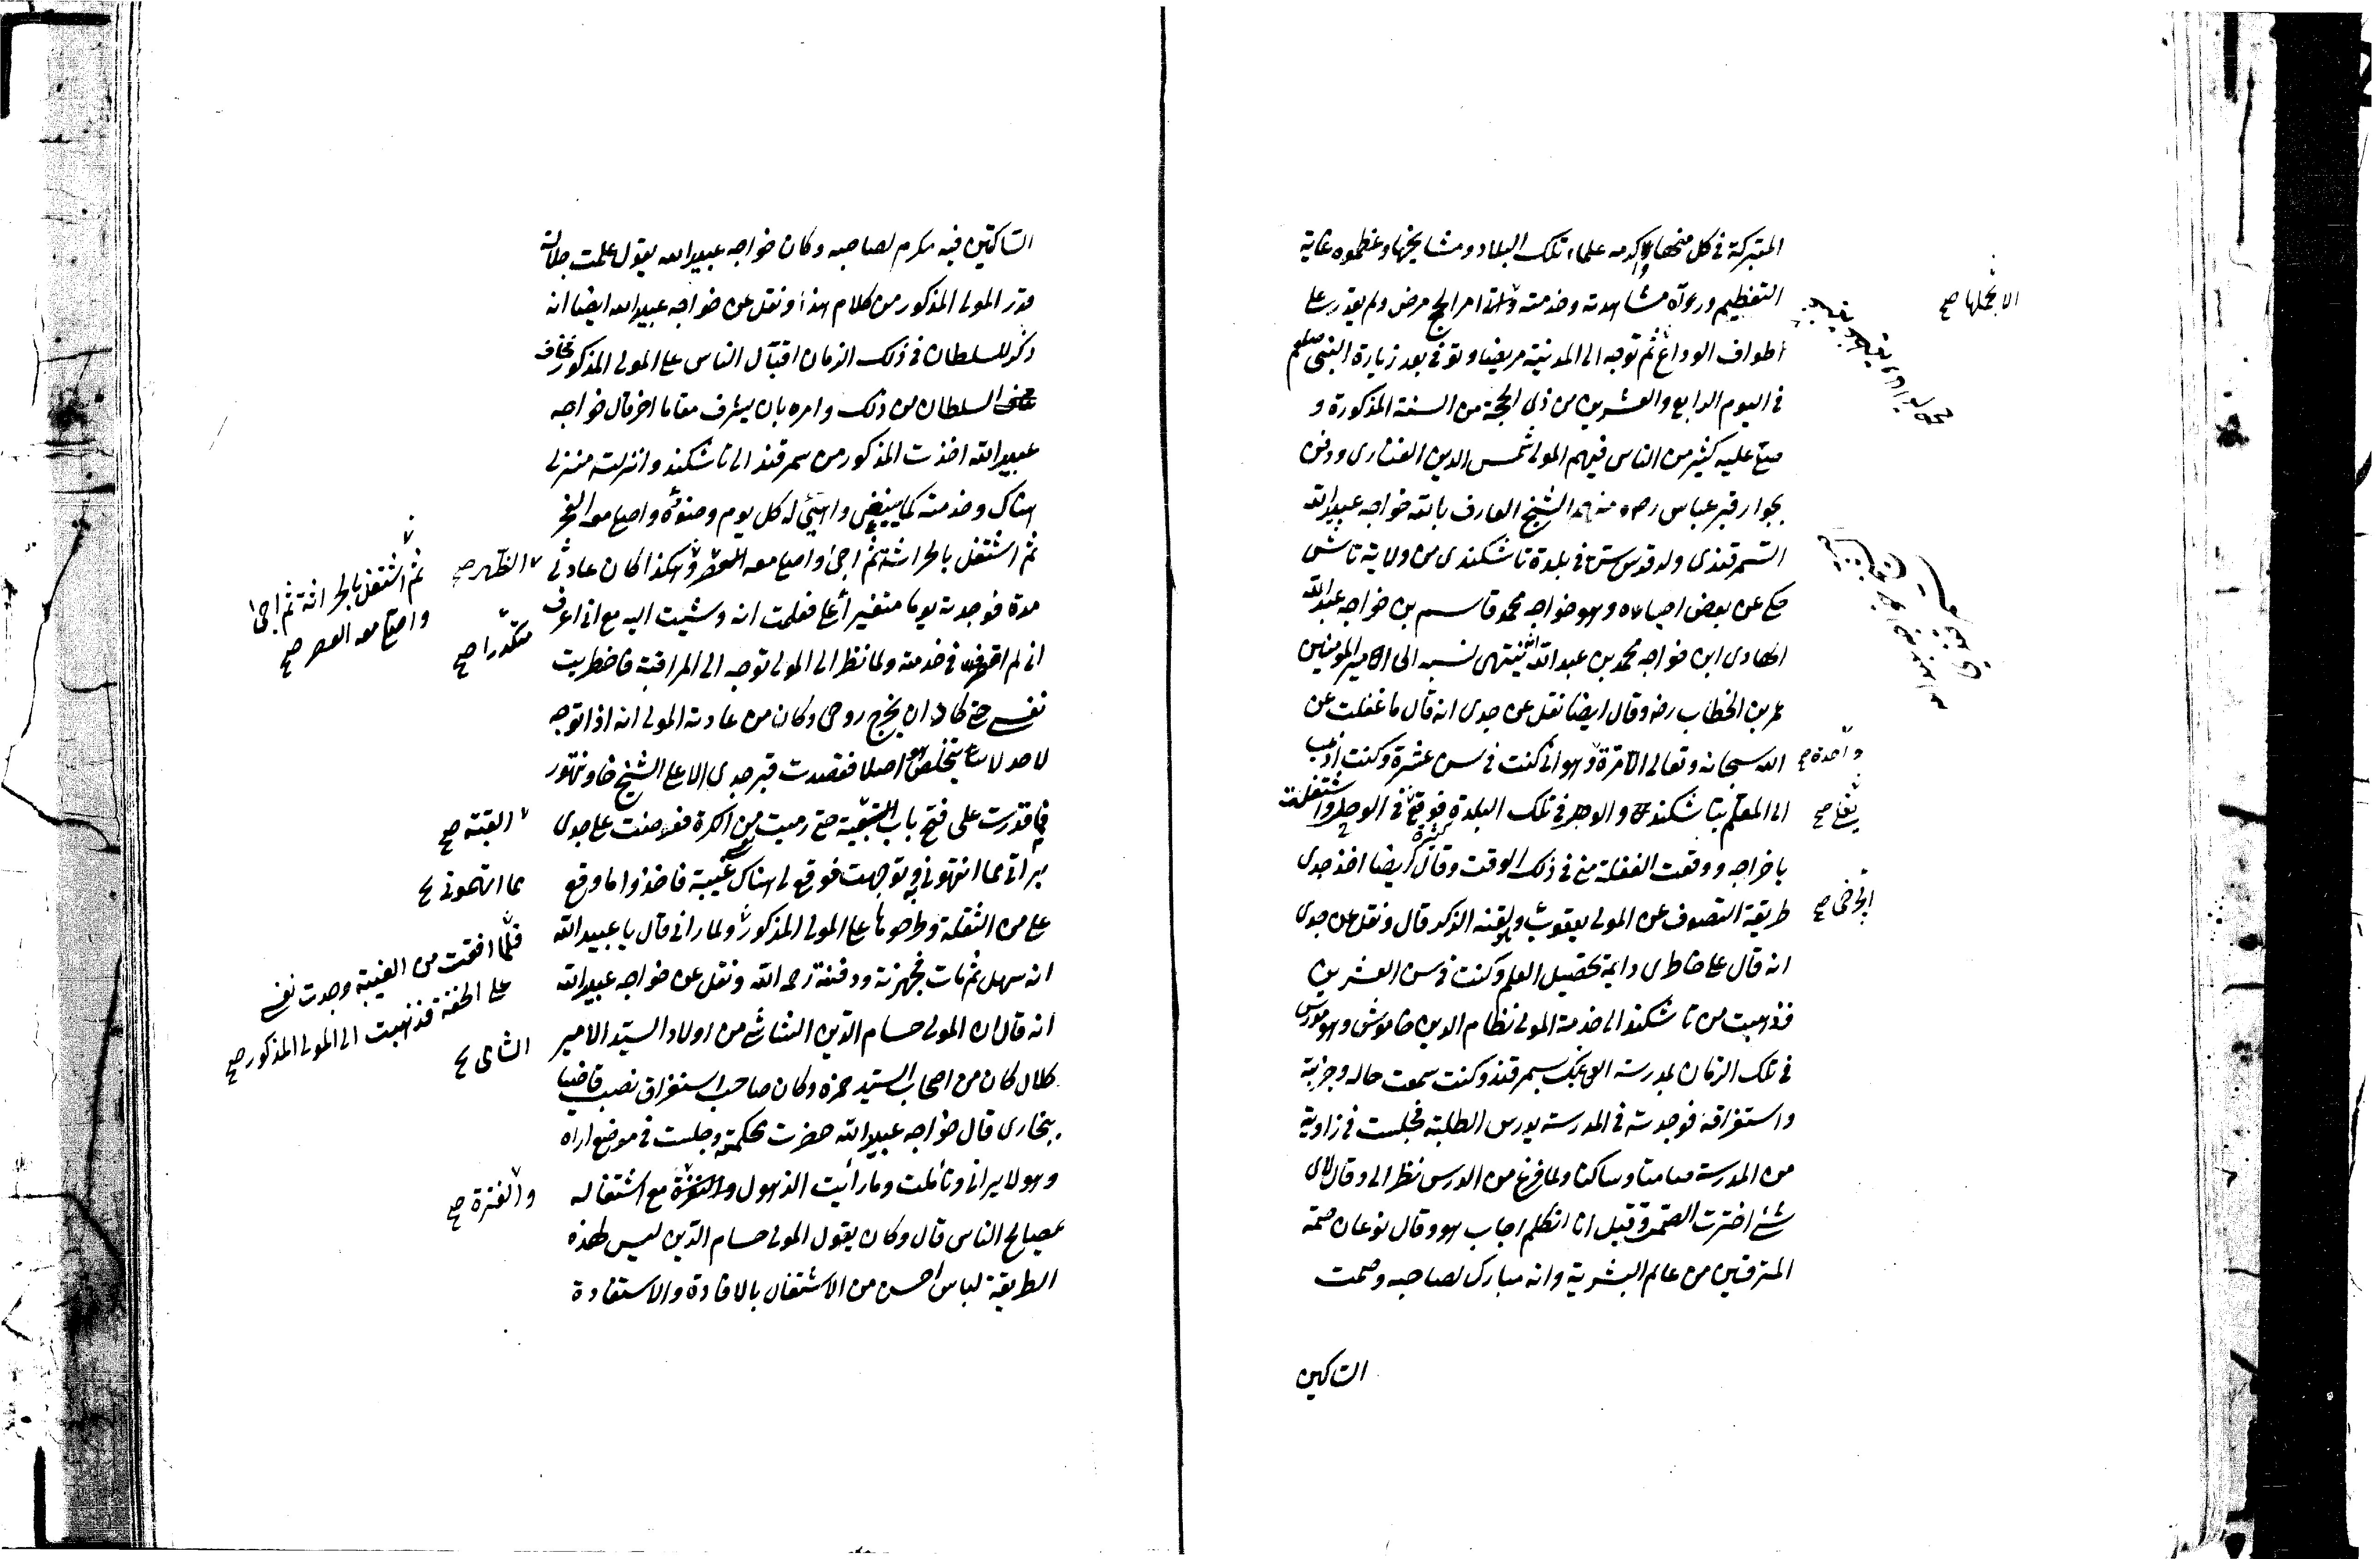 المتبركة في كل منها واكرمه علماء تلك البلاد ومشايخها وعظموه غاية
التعظيم وراوا مشاهدته وخدمته ولما تم امر الحج مرض ولم يقدر على
طواف الوداع ثم توجه الى المدينة مريضا وتوفى بعد زيارة النبى صلعم
فى اليوم الرابع والعشرين من ذى الحجة من السنة المذكورة و
صلى عليه كثير من الناس فيهم المولى شمس الدين الفنارى ودفن
بجوار قبر عباس رضه منهم الشيخ العارف بالله خواجه عبيدالله
السمرقندى ولد قدس سره فى بلدة تاشكندى من ولاية تاش
حكى عن بعض احبائه وهو خواجه محمد قاسم بن خواجه عبدالله
الهادى ابن خواجه محمد بن عبدالله ينتهى نسبه الى امير المومنين
عمر بن الخطاب رضه وقال ايضا نقل عن جدى انه قال ما غفلت عن
الله سبحانه وتعالى الا مرة وهو انى كنت فى سن عشرة وكنت اذهب
الى المعلم بتاشكند والوحل فى تلك البلدة فوقع فى الوحل واشتغلت
باخراجه ووقعت الغفلة منى فى ذلك الوقت وقال ايضا اخذ جدى
طريقة التصوف عن المولى يعقوب ولقنه الذكر قال ونقل عن جدى
انه قال على خاطرى داعية تحصيل العلم وكنت فى سن العشرين
فذهبت من تاشكند الى خدمة المولى نظام الدين خاموش وهو مدرس
فى تلك الزمان بمدرسة الغ بك بسمرقند وكنت سمعت حاله وجذبته
واستغراقه فوجدته فى المدرسة يدرس الطلبة فجلست فى زاوية
من المدرسة صامتا وساكنا ولما فرغ من الدرس نظر الى وقال لاى
شئ اخترت الصمت وقبل ان اتكلم اجاب هو وقال نوعان صمت
المترقين من عالم البشرية وانه مبارك لصاحبه وصمت
الساكنين
الا بجملها صح
واحدة صح
ابو خى صح
الساكنين فيه مكرم لصاحبه وكان خواجه عبيدالله يقول علمت جلالة
قدر المولى المذكور من كلام هذا ونقل عن خواجه عبيدالله ايضا انه
ذكر للسلطان فى ذلك الزمان اقبال الناس على المولى المذكور فخاف
السلطان من ذلك وامره بان يشرف مقاما اخر قال خواجه
عبيدالله اخذت المذكور من سمرقند الى تاشكند وانزلته منزلى
هناك وخدمته كما ينبغى واهيئ له كل يوم وضوئه واصلى معه الفجر
ثم اشتغل بالحراثة ثم اجئ واصلى معه وهكذا كان عادتى
مدة فوجدته يوما متغيرا على فعلمت انه وشيت اليه مع انى اعرف
انى لم اقصر فى خدمته ولما نظر الى المولى توجه الى المراقبة فاضطربت
نفسى حتى كاد ان يخرج روحى وكان من عادت المولى انه اذا توجه
لاحد لا يتخلص اصلا فقصدت قبر جدى الاعلى الشيخ خاوند طهور
فما قدرت على فتح باب حتى رميت من الكرة فعرضت على جدى
براتى مما اتهمونى به وتوجهت فوقع لى هناك غيبة فاخذوا ما وقع
على من الثقلة وطرحوها على المولى المذكور ولما رانى قال يا عبيدالله
انه سهل ثم مات فجهزته ودفنته رحمه الله ونقل عن خواجه عبيدالله
انه قال ان المولى حسام الدين الشاشى من اولاد السيد الامير
كلال كان من اصحاب السيد حمزه وكان صاحب استغراق نصب قاضيا
ببخارى قال خواجه عبيدالله حضرت محكمته وجلست فى موضع اراه
وهو لا يرانى وتأملت وما رأيت الذهول والفترة مع اشتغاله
بمصالح الناس قال وكان يقول المولى حسام الدين ليس لهذه
الطريقة لباس احسن من الاشتغال بالافادة والاستفادة
الظهر صح
ثم اشتغل بالحراثة ثم اجئ
واصلى معه العصر صح
متكدرا صح
القبة صح
مما اتهمونى صح
فلما افقت من الغيبة وجدت نفسى
على الخفة فذهبت الى المولى المذكور صح
الشاشى صح
والفترة صح